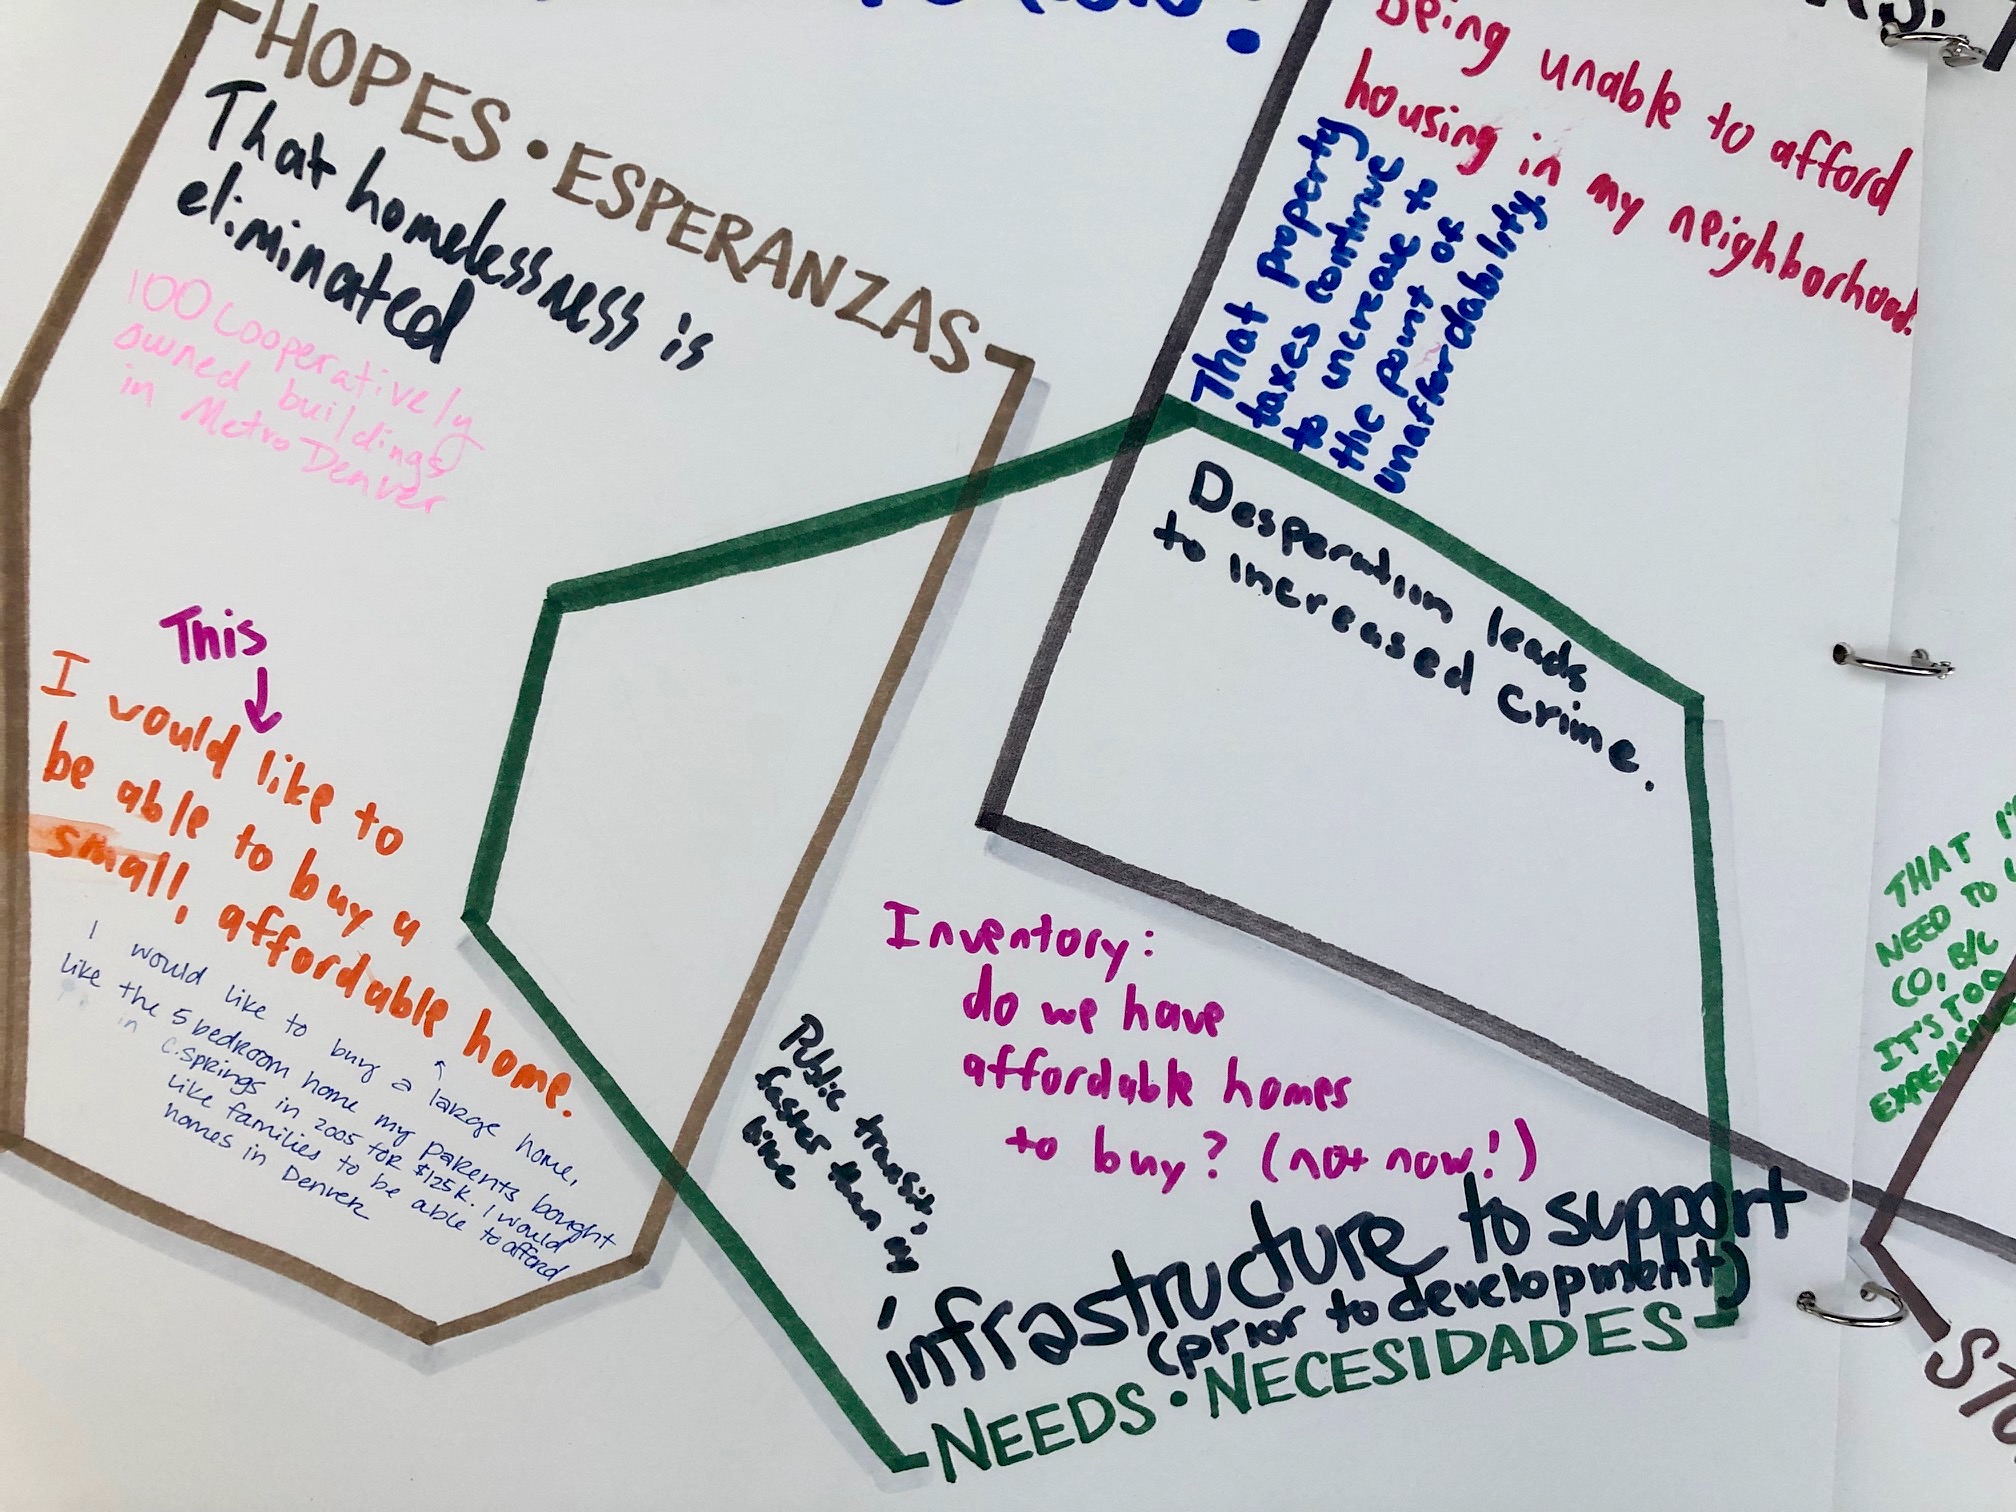 HOPES • ESPERANZAS
That homelessness is
eliminated
100 cooperatively
owned buildings
in Metro Denver
This
I would like to
be able to buy a
small, affordable home.
I would like to buy a large home,
like the 5 bedroom home my parents bought
in C. Springs in 2005 for $125K. I would
like families to be able to afford
homes in Denver
Being unable to afford
housing in my neighborhood!
That property
taxes continue
to increase to
the point of
unaffordability.
Desperation leads
to increased crime.
Inventory:
do we have
affordable homes
to buy? (not now!)
Public transit,
faster than my
bike
infrastructure to support
(prior to development)
NEEDS • NECESIDADES
THAT
NEED TO
CO, B/C
IT'S TOO
EXPENSIVE